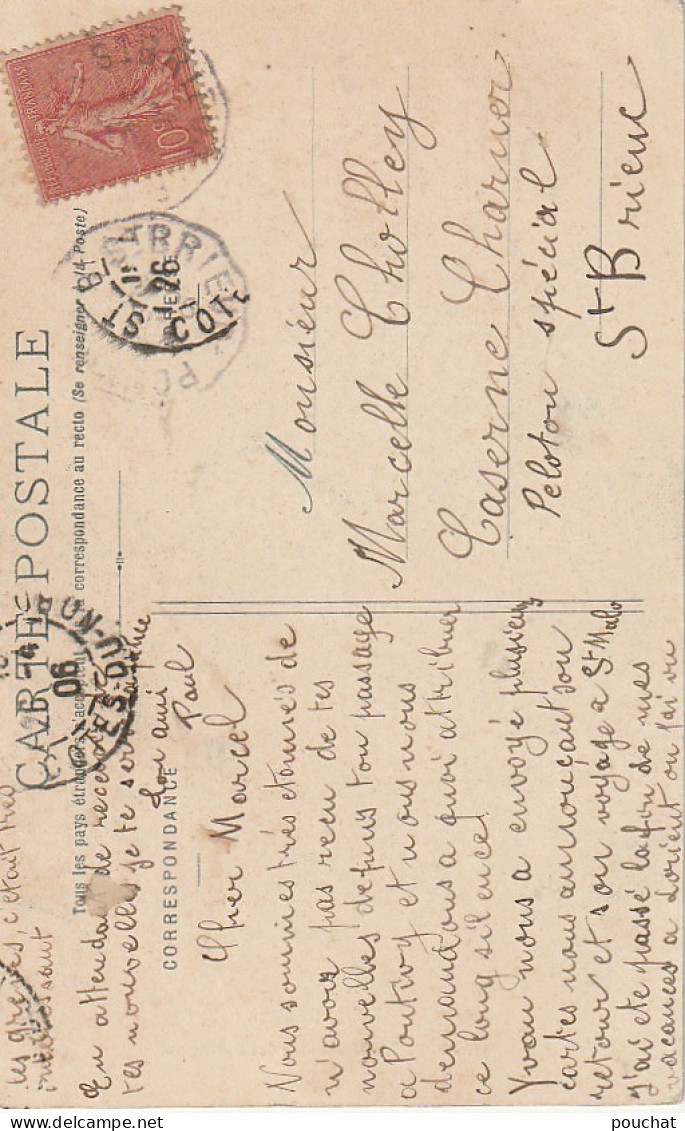 CARTE POSTALE
Tous les pays étrangers n'acceptent pas la correspondance au recto (Se renseigner à la Poste)
CORRESPONDANCE
Cher Marcel
Nous sommes très étonnés de
n'avoir pas reçu de tes
nouvelles depuis ton passage
a Pontivy et nous nous
demandons a quoi attribuer
ce long silence!
Yvan nous a envoyé plusieurs
cartes nous annonçant son
retour et son voyage a St Malo
J'ai été passé la fin de mes
vacances a Lorient ou j'ai vu
les grèves, c'était très
intéressant
En attendant de recevoir de
tes nouvelles je te serre la
Ton ami
Paul
Monsieur
Marcelle Cholley
Caserne Charner
Peloton spécial
St Brieuc
10c
06
pouchat